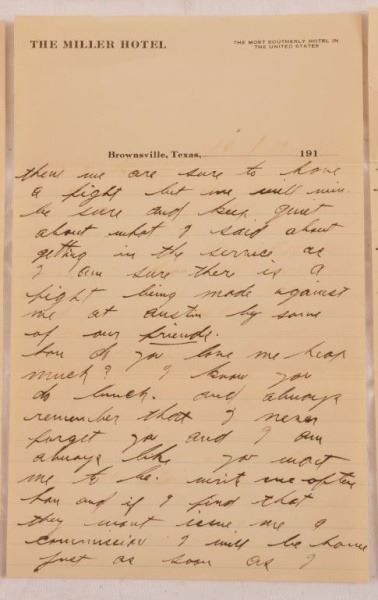 THE MILLER HOTEL
THE MOST SOUTHERLY HOTEL IN
THE UNITED STATES
Brownsville, Texas, 191
them we are sure to have
a fight but we will win.
be sure and keep quiet
about what I said about
getting in the service as
I am sure there is a
fight being made against
me at austin by some
of our friends.
hon do you love me heap
much? I know you
do hunch. and always
remember that I never
forget you and I am
always like you want
me to be. write me often
hon and if I find that
they wont issue me a
commission I will be home
just as soon as I